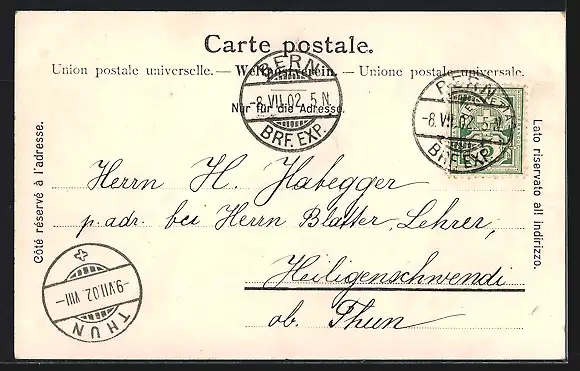 Carte postale.
Union postale universelle. — Weltpostverein. — Unione postale universale.
Nur für die Adresse.
BERN
-8.VII.02. 5 N
BRF. EXP.
BERN
-8.VII.02. 5 N
BRF. EXP.
Côté réservé à l'adresse.
Lato riservato all indirizzo.
Herrn H. Habegger
p. adr. bei Herrn Blatter, Lehrer,
Heiligenschwendi
ob. Thun
THUN
-9.VII.02. VIII-